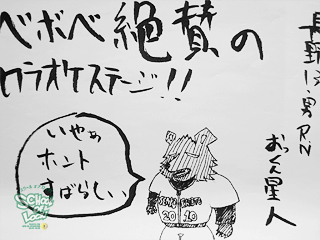 ベボベ絶賛の
カラオケステージ!!
長野 13 男 RN
おっくん星人
いやぁ
ホント
すばらしい
2010
SCHOOL
OF LOCK!